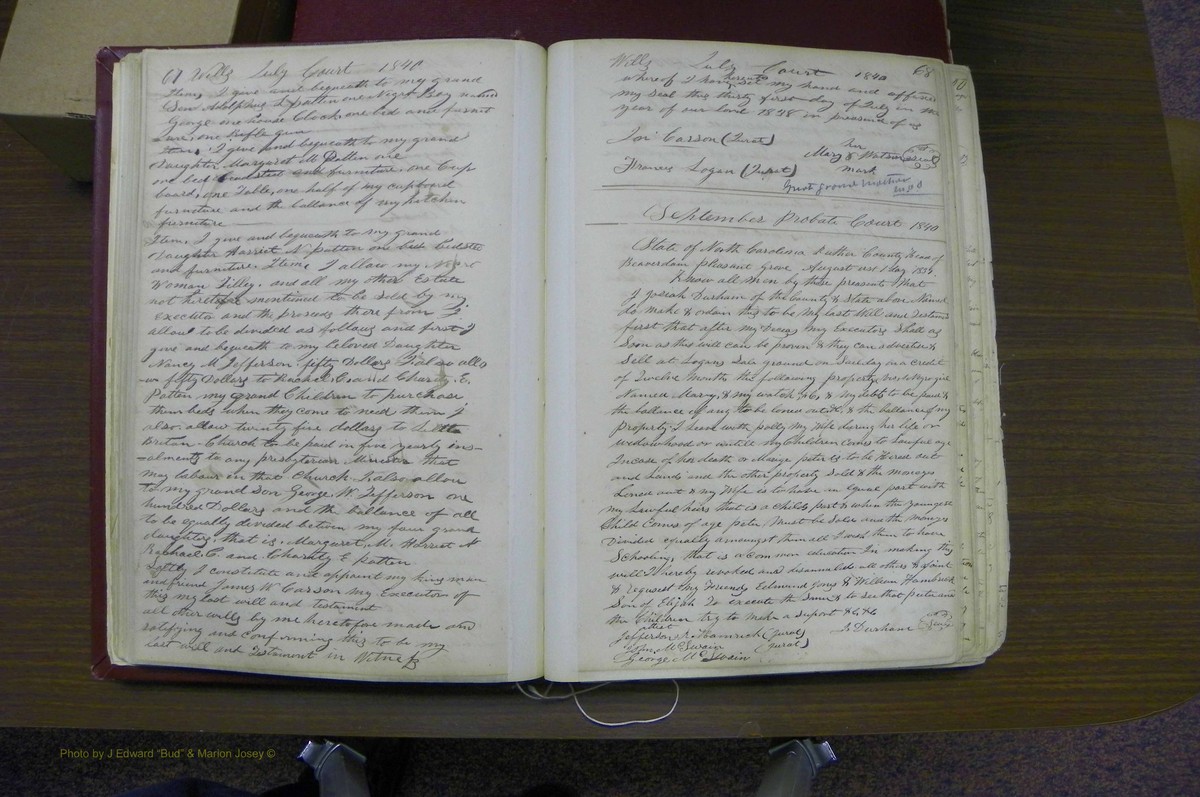 67 Wills July Court 1840
Item, I give and bequeath to my grand
Son Adolphus L Patten one Negro Boy named
George one house Clock one bed and furnit
ure, one Rifle gun
Item, I give and bequeath to my grand
Daughter Margaret M Patten one
one bed bedsted and furniture, one Cup
board, one Table, one half of my cupboard
furniture and the ballance of my kitchen
furniture
Item, I give and bequeath to my grand
Daughter Harriet N Patten one bed bedste
and furniture. Item, I allow my Negro
Woman Tilley, and all my other Estate
not heretofore mentioned to be sold by my
executor and the proceeds there from I
allow to be divided as follows and first I
give and bequeath to my beloved Daughter
Nancy M Jefferson fifty Dollars I also allo
-w fifty Dollars to Rachael C. and Charity E.
Patten my grand Children to purchase
them beds when they come to need them I
also allow twenty five dollars to Little
Britain Church to be paid in five yearly ins-
-alments to any presbyterian Minister that
may labour in that Church I also allow
to my grand Son George W. Jefferson one
hundred Dollars and the ballance of all
to be equally divided between my four grand
daughters, that is, Margaret M. Harriet N
Rachael C. and Charity E patten
Lastly I constitute and appoint my kins man
and friend James W Carson my Executor of
this my last will and testament
all other wills by me heretofore made and
ratifying and confirming this to be my
last will and Testament in Witness
Wills July Court 1840 68
whereof I have hereunto set my hand and affixed
my seal this thirty first day of July in the
year of our lord 1848 in presence of us
Jos Carson (Jurat) her
Mary Watson seal
Francis Logan (Jurat) mark
September Probate Court 1840
State of North Carolina Ruther County Head of
Beaverdam pleasant grove August 1st day 1839.
Know all Men by these presents that
I Josiah Durham of the County & State above Named
do make & ordain this to be my last Will and Testament
first that after my Decease my Executors Shall as
Soon as this will can be proven & they can advertise &
Sell at Logans Sale ground on Tuesday on a credit
of Twelve Months the following property girl
Named Mary, & my watch &c, & my debts to be paid &
the ballance if any to be loned out & the ballance of my
Property I leave with polly my Wife during her life or
widowhood or untill my Children Comes to Lawful age
Incase of her death or Marrige peter is to be Hired out
and Lands and the other property Sold & the moneys
Loned out & my Wife is to have an equal part with
my Lawful heirs that is a Childs part & when the youngest
Child Comes of age peter Must be Sold and the moneys
Divided equally amongst them all I wish them to have
Schooling, that is a Common education In making this
will I hereby revoked and disannulled all others & apoint
& request My Friends Edmund Jones & William Hambrick
Son of Elijah To execute the Same & to see that peter and
the Children try to make a Suport &c &c
attest
Jefferson Hamrick (Jurat) J. Durham
McSwain (Jurat)
George McSwain
Photo by J Edward "Bud" & Marion Josey ©